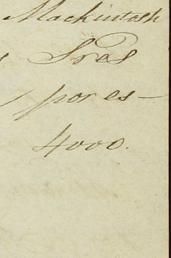 Mackintosh
Sres
por es-
4000.